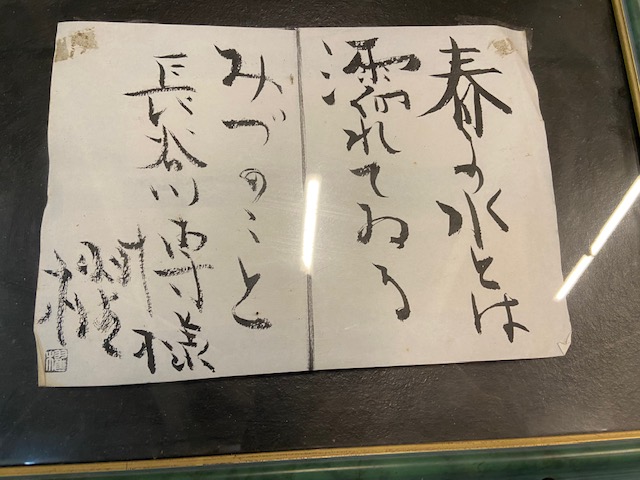 春の水とは
濡れてゐる
みづのこと
長谷川博様
櫂